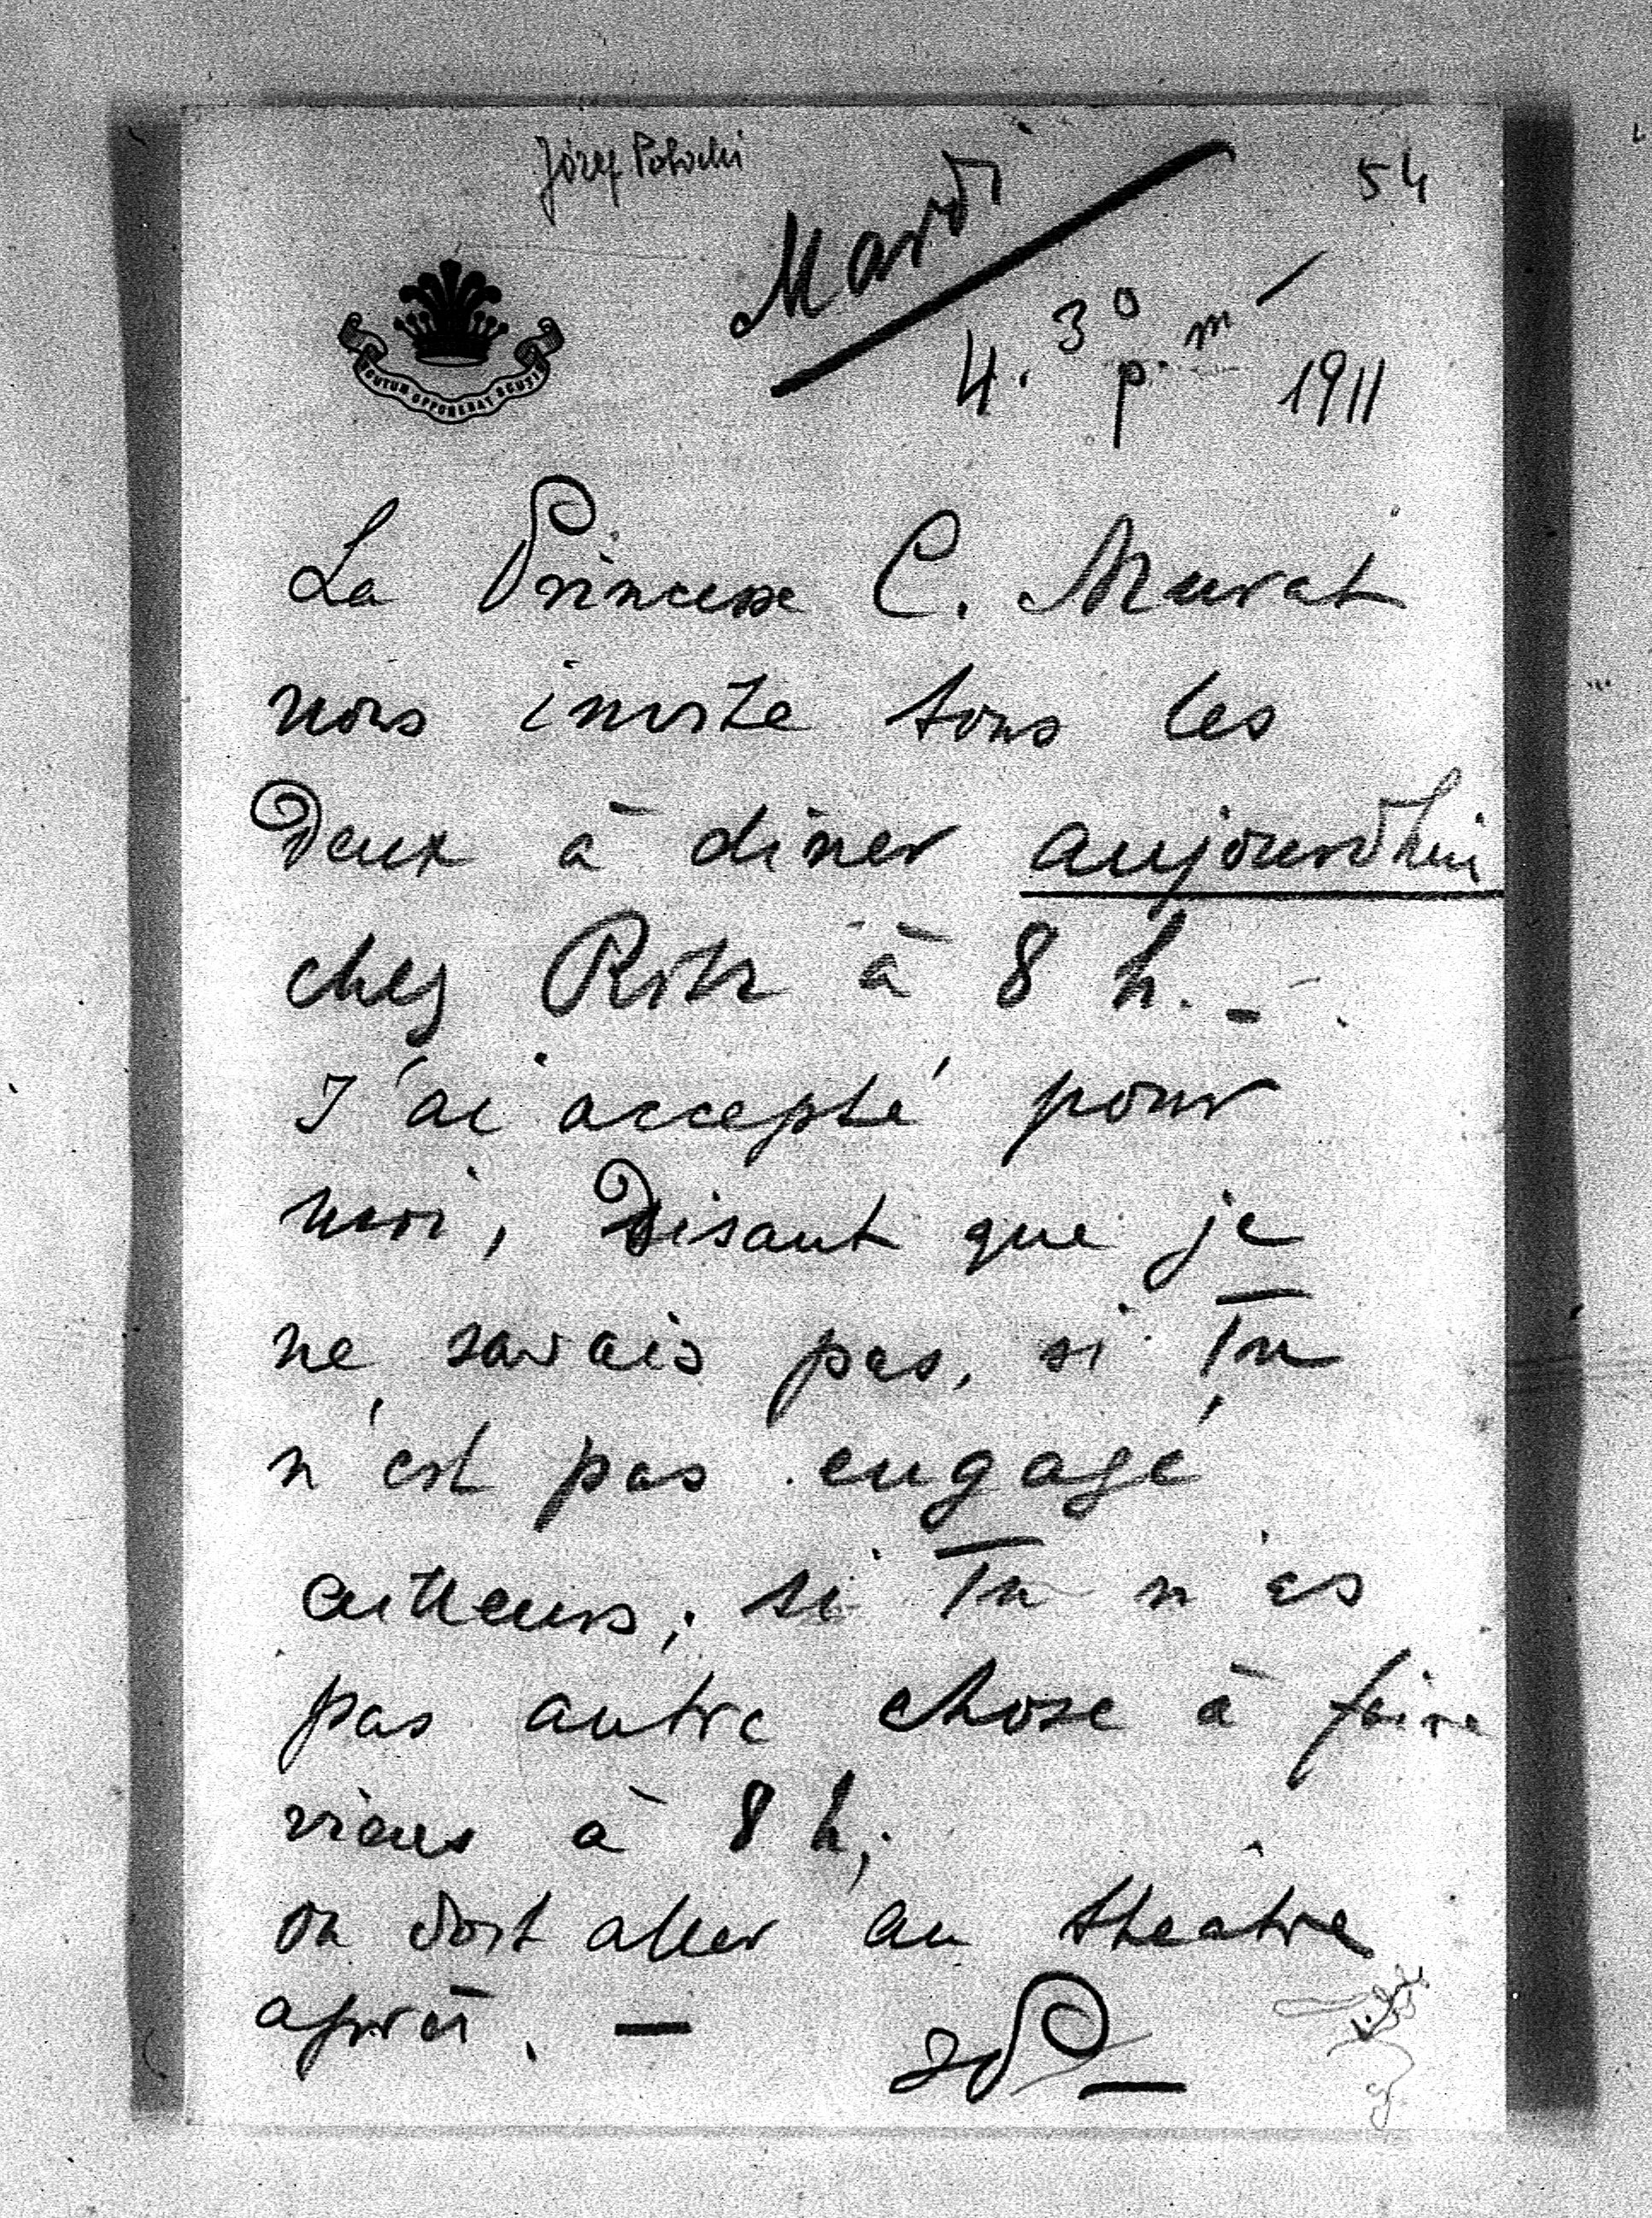 Józef Potocki
54
Mardi
4.30 p.m 1911
SCUTUM OPPONEBAT SCUTIS
La Princesse C. Murat
nous invite tous les
Deux à diner aujourd'hui
chez Ritz à 8 h. –
J'ai accepté pour
moi, Disant que je
ne savais pas, si Tu
n'est pas engagé
ailleurs; si Tu n'as
pas autre chose à faire
viens à 8 h;
on doit aller au théatre
après. —
JP —